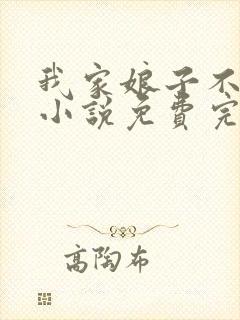 我家娘子不
小说免費完
高陶布